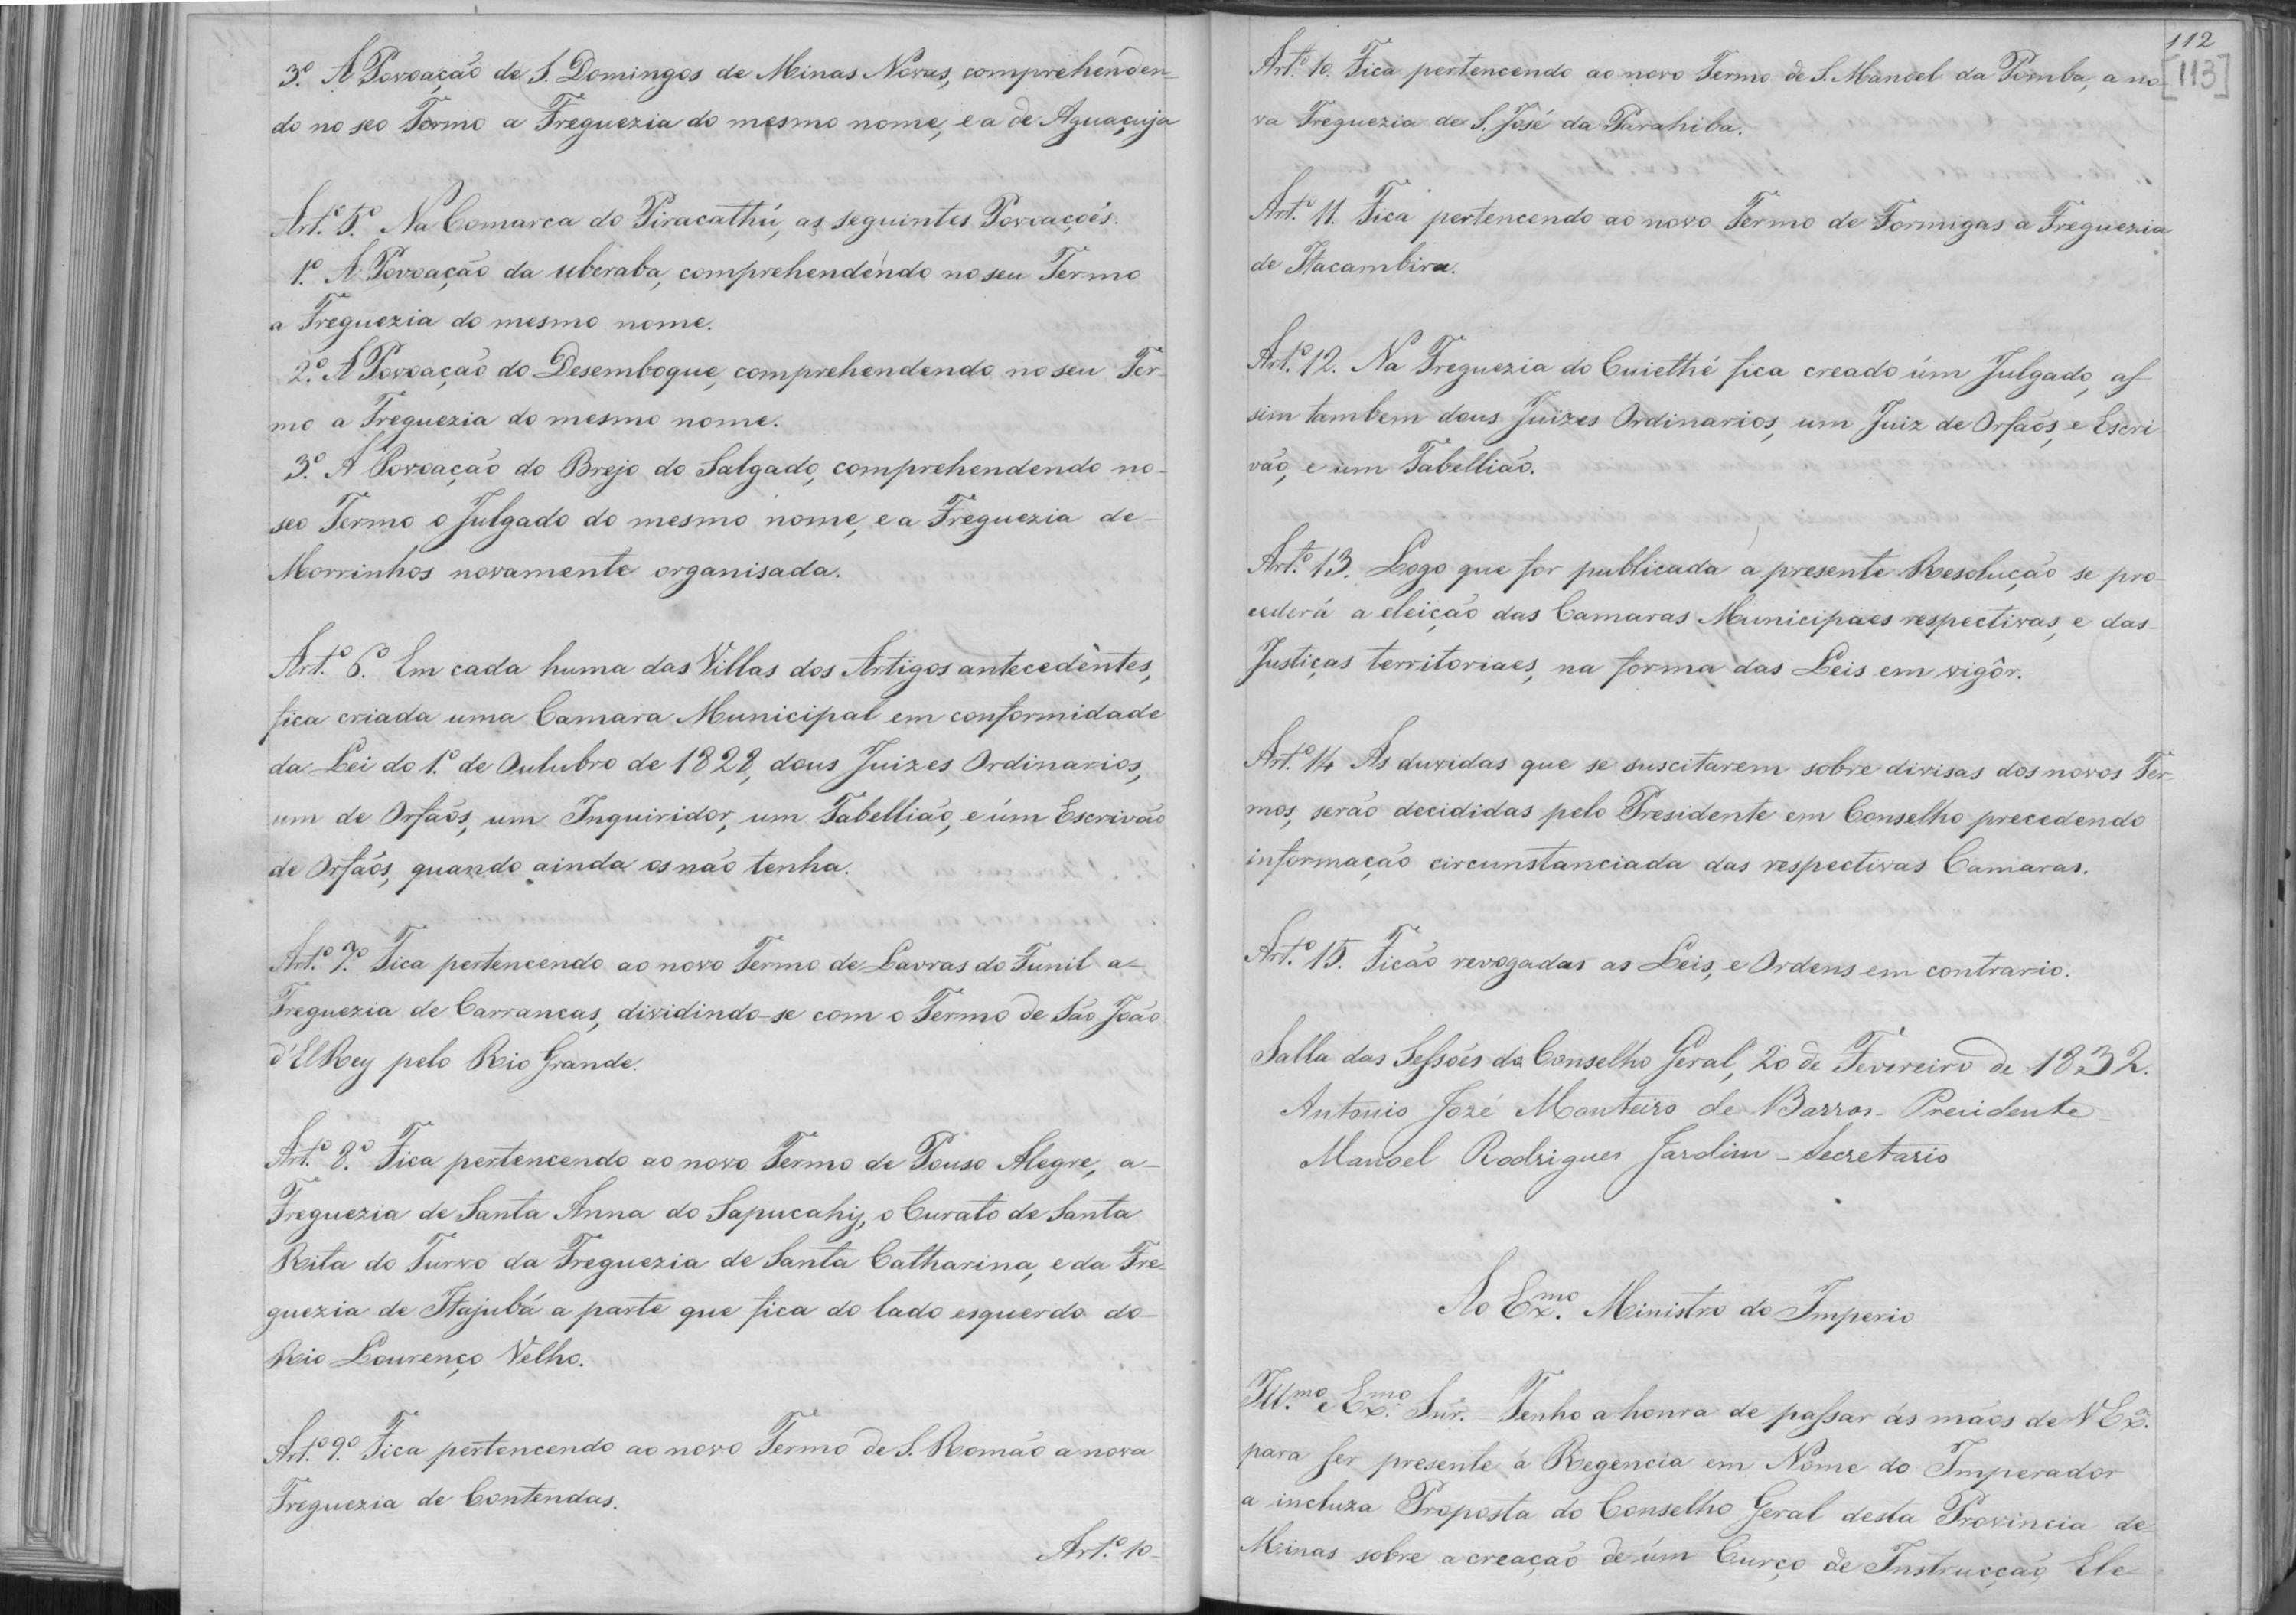 3.º A Povoação de S. Domingos de Minas Novas, comprehenden-
do no seo Termo a Freguezia do mesmo nome, e a de Aguaçuja
Art.º 5.º Na Comarca do Piracathú, as seguintes Povoações.
1.º A Povoação da uberaba, comprehendendo no seu Termo
a Freguezia do mesmo nome.
2.º A Povoação do Desemboque, comprehendendo no seu Ter-
mo a Freguezia do mesmo nome.
3.º A Povoação do Brejo do Salgado, comprehendendo no-
seo Termo o Julgado do mesmo nome, e a Freguezia de-
Morrinhos novamente organisada.
Art.º 6.º Em cada huma das Villas dos Artigos antecedêntes,
fica criada uma Camara Municipal em conformidade
da Lei do 1.º de Outubro de 1828, dous Juizes Ordinarios,
um de Orfaõs, um Inquiridor, um Tabellião, e úm Escrivão
de Orfaõs, quando ainda os não tenha.
Art.º 7.º Fica pertencendo ao novo Termo de Lavras do Funil a-
Freguezia de Carrancas, dividindo-se com o Termo de São João
d'ElRey pelo Rio Grande.
Art.º 8.º Fica pertencendo ao novo Termo de Pouso Alegre, a-
Freguezia de Santa Anna do Sapucahy, o Curato de Santa
Rita do Turvo da Freguezia de Santa Catharina, e da Fre-
guezia de Itajubá a parte que fica do lado esquerdo do-
Rio Lourenço Velho.
Art.º 9.º Fica pertencendo ao novo Termo de S. Romão a nova
Freguezia de Contendas.
Art.º 10-
112
[113]
Art.º 10. Fica pertencendo ao novo Termo de S. Manoel da Pomba, a no-
va Freguezia de S. José da Parahiba.
Art.º 11. Fica pertencendo ao novo Termo de Formigas a Freguezia
de Itacambira.
Art.º 12. Na Freguezia do Cuiethé fica creado úm Julgado, as-
sim tambem dous Juizes Ordinarios, um Juiz de Orfaõs, e Escri-
vão, e um Tabellião.
Art.º 13. Logo que for publicada a presente Resolução se pro-
cederá a eleição das Camaras Municipaes respectivas, e das-
Justiças territoriaes, na forma das Leis em vigôr.
Art.º 14 As duvidas que se suscitarem sobre divisas dos novos Ter-
mos, serão decididas pelo Presidente em Conselho precedendo
informação circunstanciada das respectivas Camaras.
Art.º 15. Ficão revogadas as Leis, e Ordens em contrario.
Salla das Sessões do Conselho Geral, 20 de Fevereiro de 1832.
Antonio Jozé Monteiro de Barros - Presidente
Manoel Rodrigues Jardim - Secretario
Ao Ex.mo Ministro do Imperio
Ill.mo e Ex.mo Snr. Tenho a honra de passar ás mãos de V Ex.ª
para ser presente á Regencia em Nome do Imperador
a incluza Proposta do Conselho Geral desta Provincia de-
Minas sobre a creação de úm Curço de Instrucção, Ele-